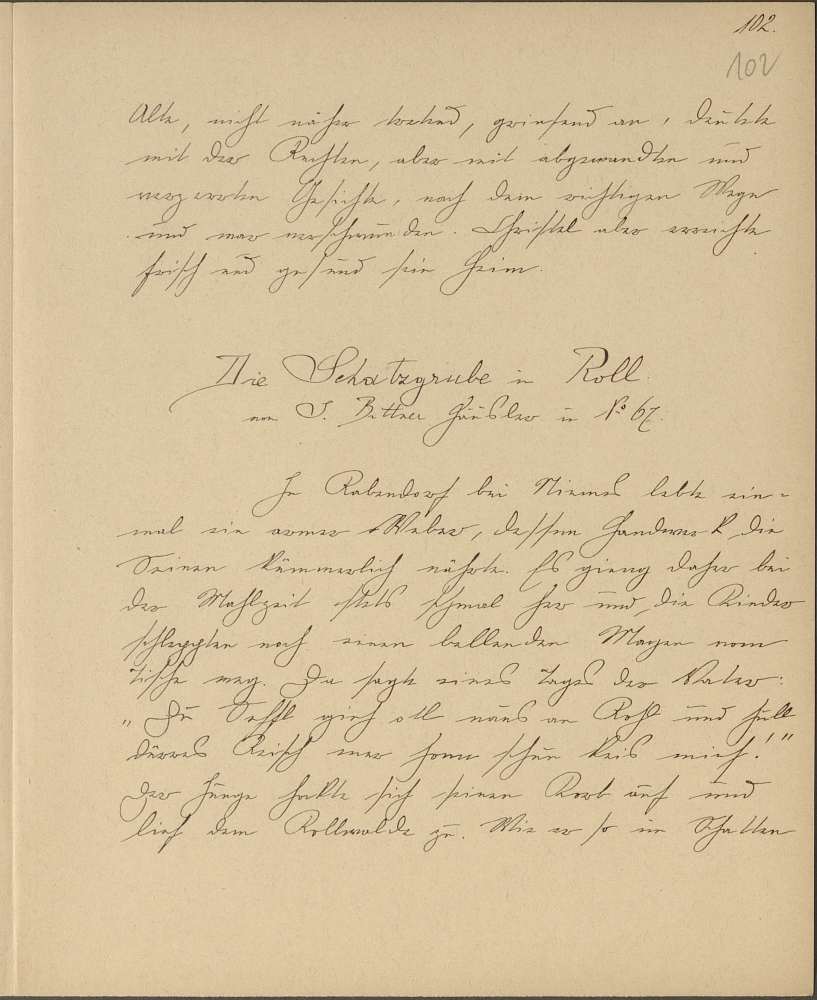 102.
102
Alte, nicht näher tretend, grinsend an, deutete
mit der Rechten, aber mit abgewandten und
verzerrten Gesichte, nach dem richtigen Wege
und war verschwunden. Christel aber erreichte
frisch und gesund sein Heim.
Die Schatzgrube in Roll.
von J. Bittner Häusler in No 67.
In Rabendorf bei Niemes lebte ein-
mal ein armer Weber, dessen Handwerk die
Seinen kümmerlich nährte. Es gieng daher bei
der Mahlzeit stets schmal her und die Kinder
schleppten noch einen bellenden Magen vom
Tische weg. Da sagte eines Tages der Vater:
„Du Seffl gieh ock naus an und hull
dürres Reisch mer honn schun keis mieh!"
Der Junge hockte sich seinen Korb auf und
lief dem Rollwalde zu. Wie er so im Schatten